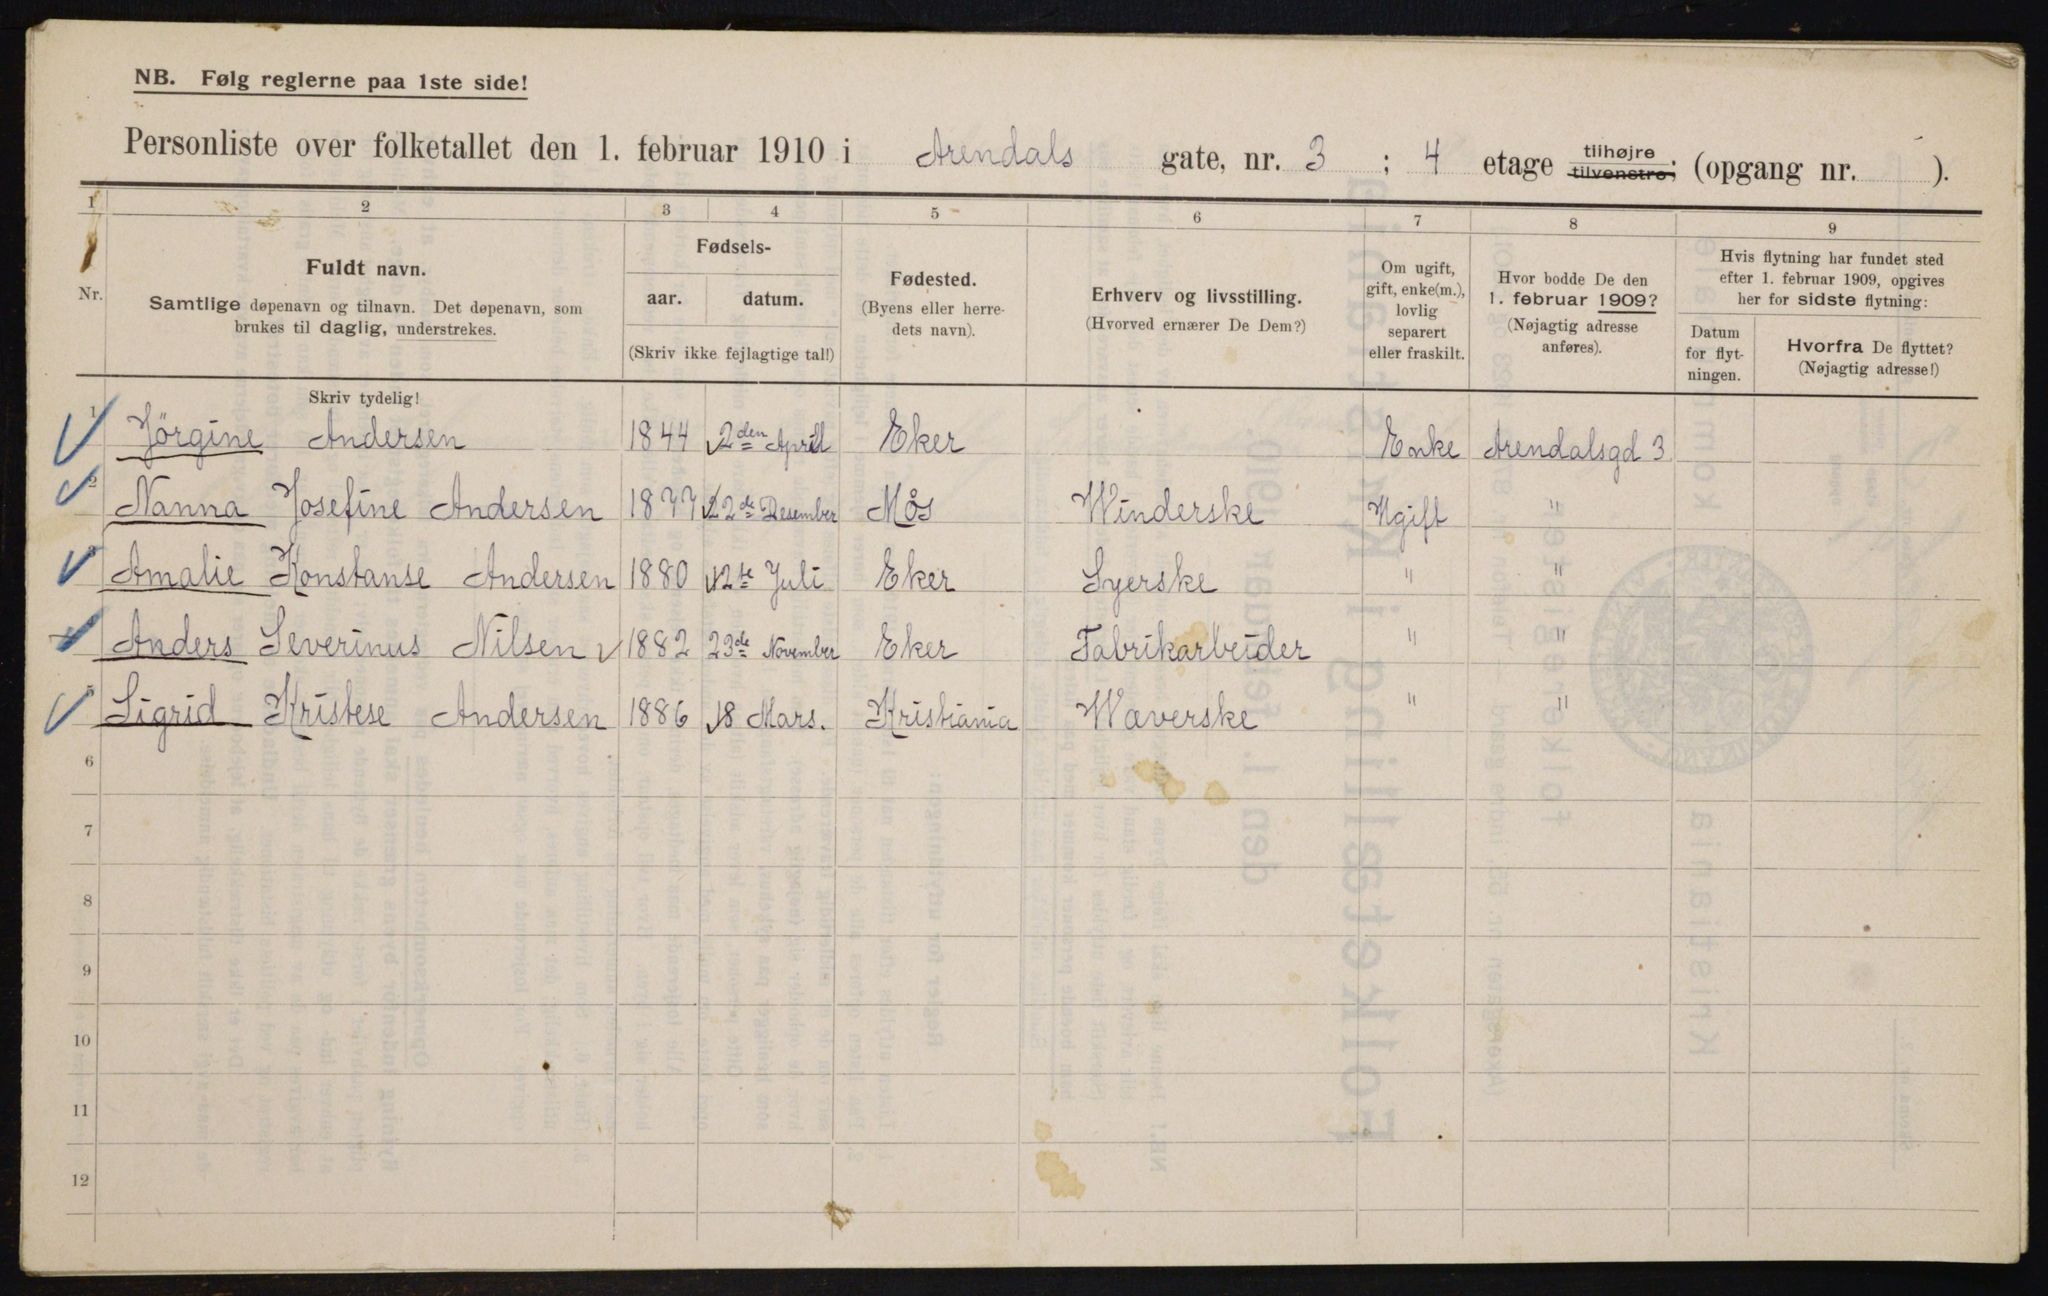 NB. Følg reglerne paa 1ste side!
Personliste over folketallet den 1. februar 1910 i Arendals gate, nr. 3 ; 4 etage tilhøjre tilvenstre; (opgang nr. ).
1 2 3 4 5 6 7 8 9
Nr.
Fuldt navn.
Samtlige døpenavn og tilnavn. Det døpenavn, som
brukes til daglig, understrekes.
Fødsels-
aar. datum.
(Skriv ikke fejlagtige tal!)
Fødested.
(Byens eller herre-
dets navn).
Erhverv og livsstilling.
(Hvorved ernærer De Dem?)
Om ugift,
gift, enke(m.),
lovlig
separert
eller fraskilt.
Hvor bodde De den
1. februar 1909?
(Nøjagtig adresse
anføres).
Hvis flytning har fundet sted
efter 1. februar 1909, opgives
her for sidste flytning:
Datum
for flyt-
ningen.
Hvorfra De flyttet?
(Nøjagtig adresse!)
Skriv tydelig!
1 Jörgine Andersen 1844 2den April Eker Enke Arendalsgd 3
2 Nanna Josefine Andersen 1877 22de Desember Mos Winderske Ugift "
3 Amalie Konstanse Andersen 1880 2te Juli Eker Syerske " "
4 Anders Severinus Nilsen 1882 23de November Eker Fabrikarbeider " "
5 Sigrid Kristese Andersen 1886 18 Mars. Kristiania Waverske " "
6
7
8
9
10
11
12